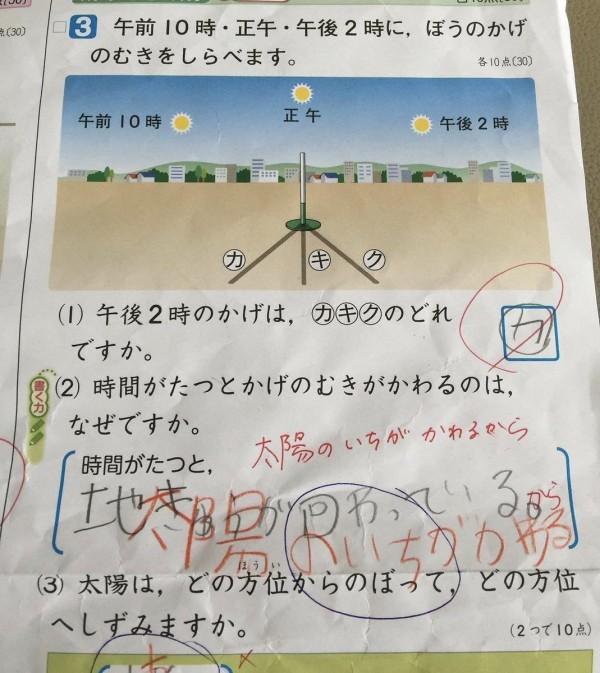 点(30)
3 午前10時・正午・午後2時に，ぼうのかげ
のむきをしらべます。
各10点(30)
午前10時
正午
午後2時
カ
キ
ク
(1) 午後2時のかげは，カキクのどれ
ですか。
カ
書く力
(2) 時間がたつとかげのむきがかわるのは，
なぜですか。
太陽のいちがかわるから
時間がたつと，
地きゅうが回わっている。から
太陽のいちがかわる
(3) 太陽は，どの方位からのぼって，どの方位
ほうい
へしずみますか。
(2つで10点)